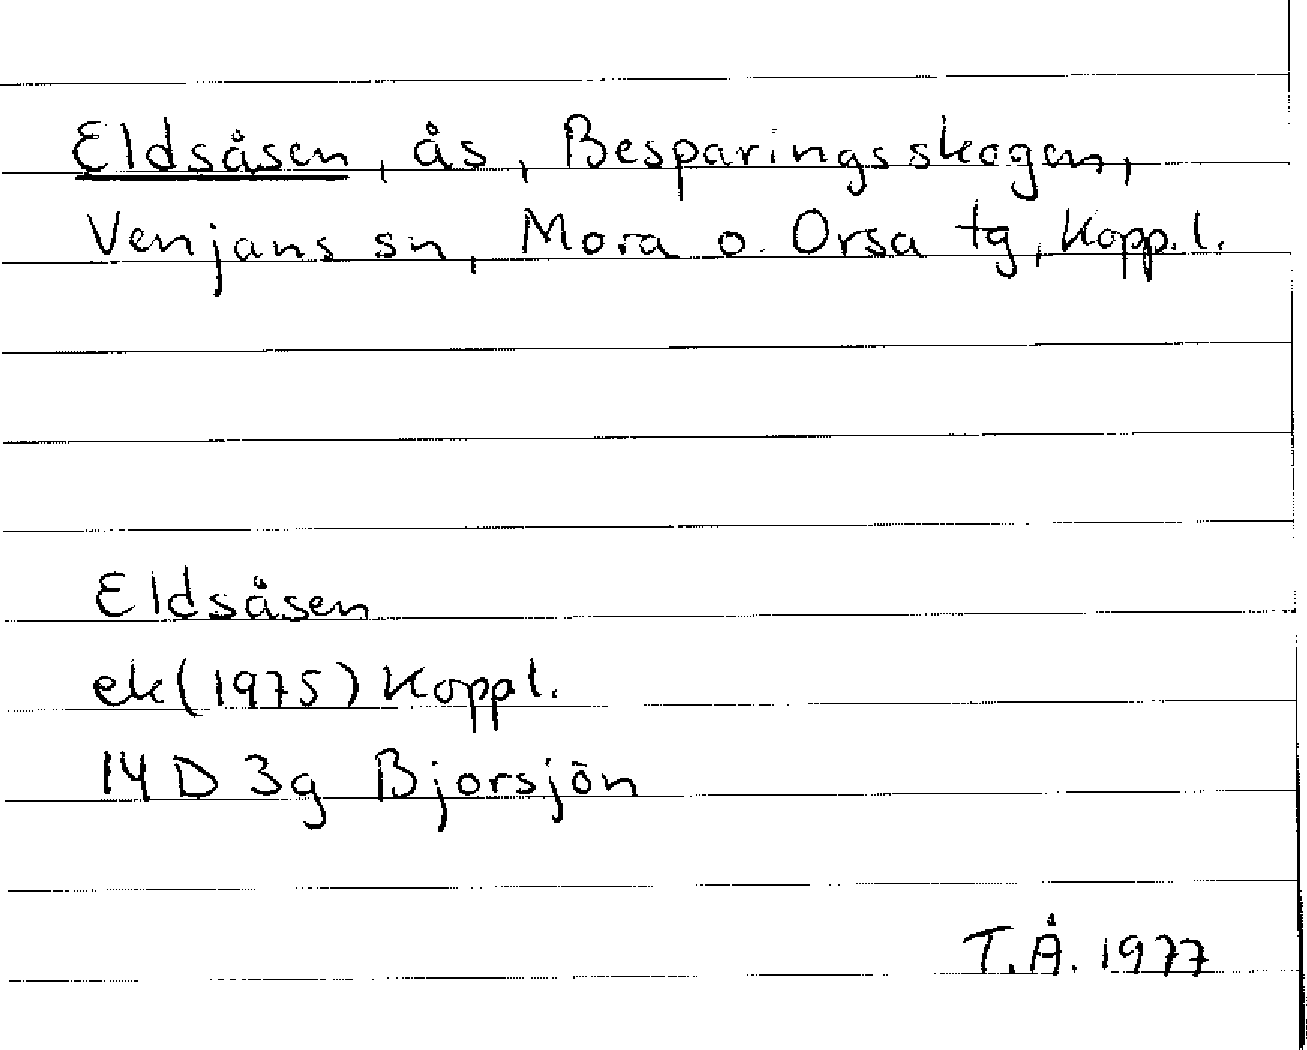 Eldsåsen, ås, Besparingsskogen,
Venjans sn, Mora o. Orsa tg, Kopp.l.
Eldsåsen
ek(1975) Koppl.
14 D 3g Bjorsjön
T.Å. 1977